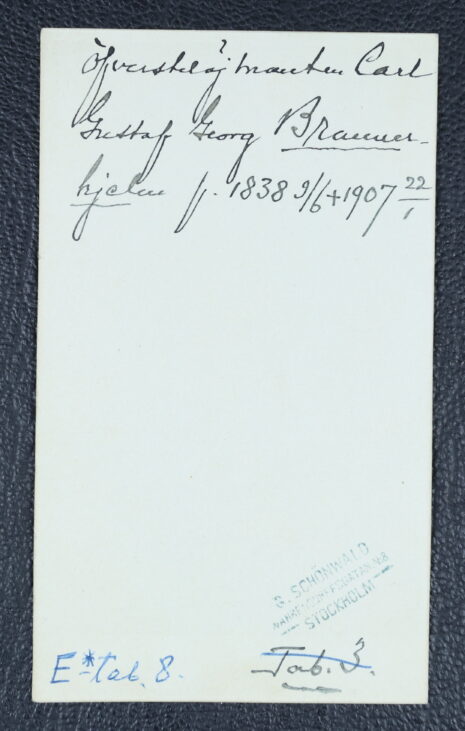 Öfverstelöjtnanten Carl
Gustaf Georg Branner-
hjelm f. 1838 9/6 + 1907 22/1
G. SCHÖNWALD
STOCKHOLM
E* tab. 8.
Tab. 3.